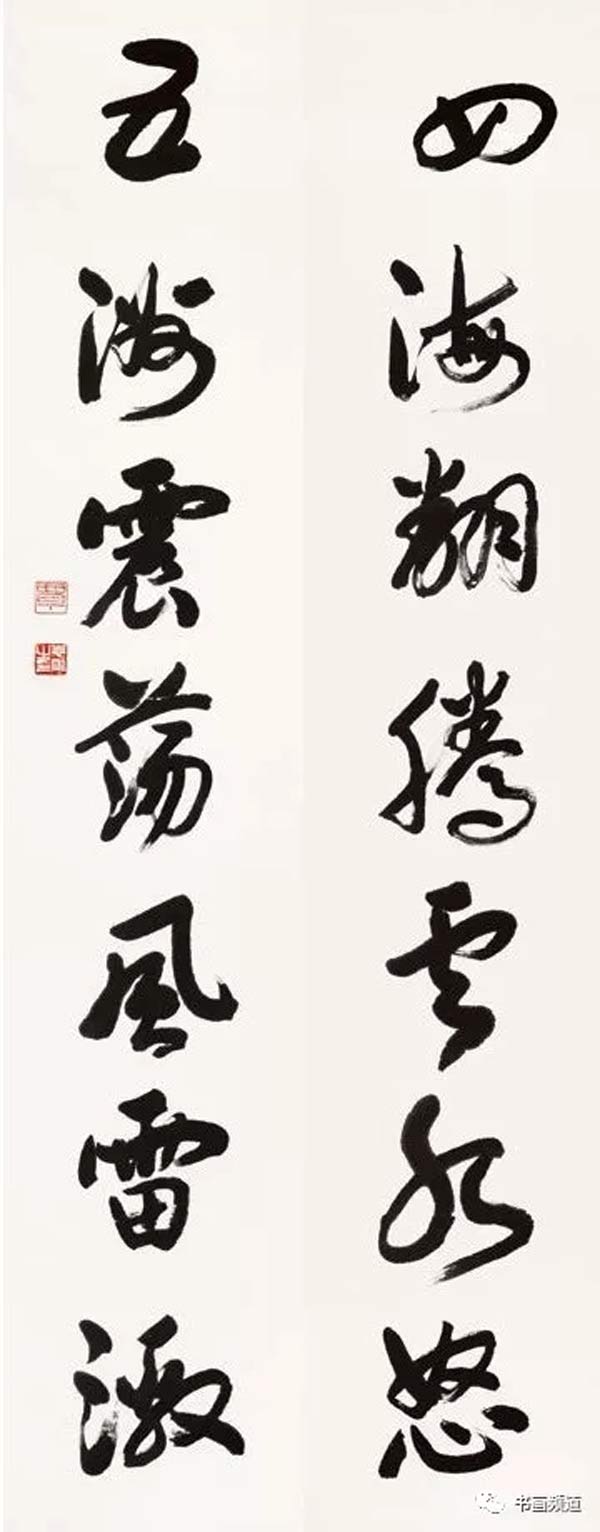 四海翻腾云水怒
五洲震荡風雷激
书画频道